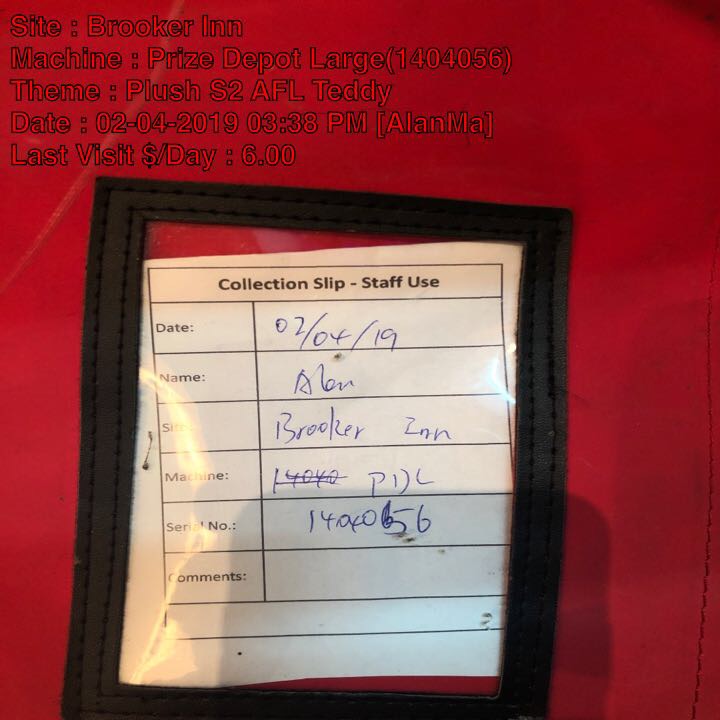 Site : Brooker Inn
Machine : Prize Depot Large(1404056)
Theme : Plush S2 AFL Teddy
Date : 02-04-2019 03:38 PM [AlanMa]
Last Visit $/Day : 6.00
Collection Slip - Staff Use
Date: 02/04/19
Name: Alan
Site: Brooker Inn
Machine: 14040 PDL
Serial No.: 1404056
Comments: